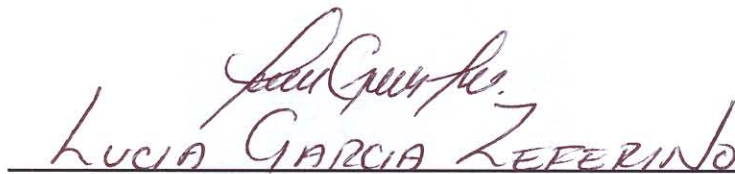 LUCIA GARCIA ZEFERINO